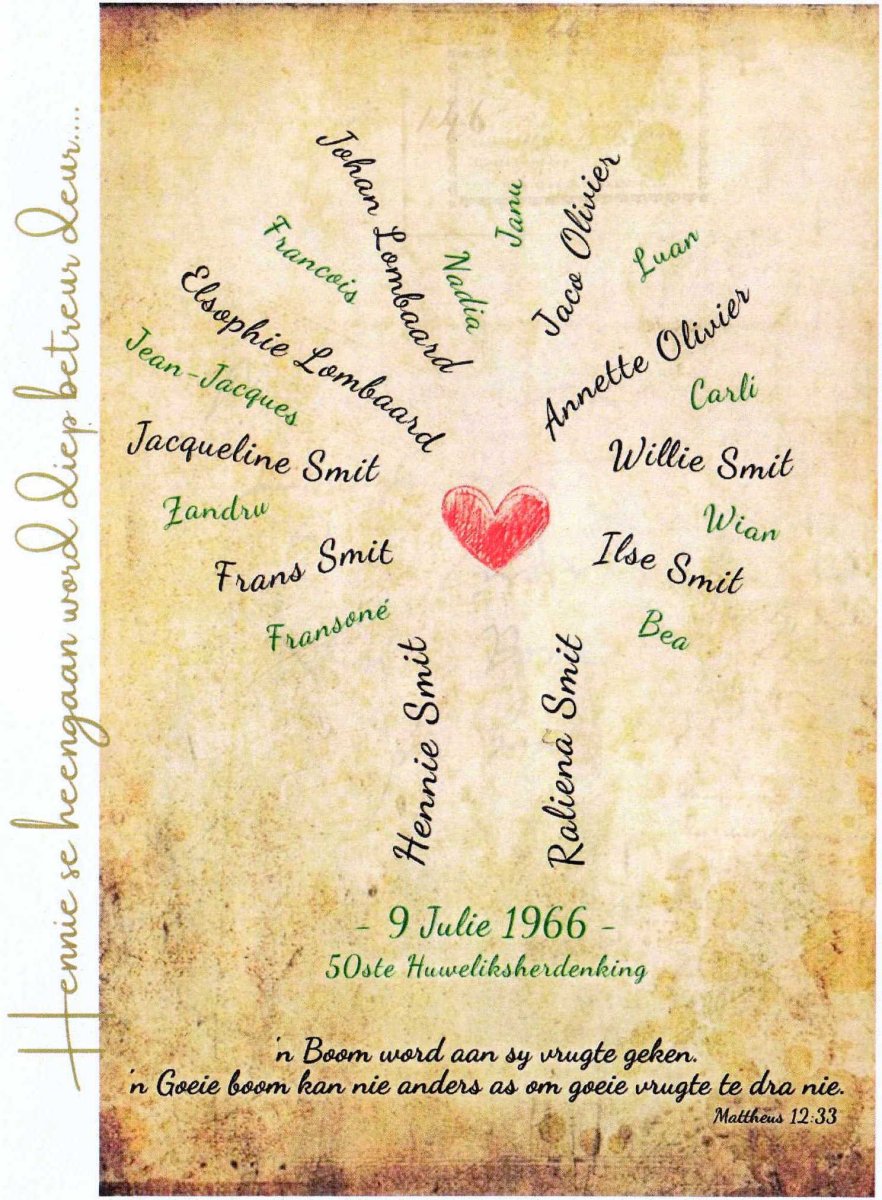 Hennie se heengaan word diep betreur deur....
Johan Lombaard
Janu
Jaco Olivier
Francois
Nadia
Luan
Elsophie Lombaard
Annette Olivier
Jean-Jacques
Carli
Jacqueline Smit
Willie Smit
Zandru
Wian
Frans Smit
Ilse Smit
Fransoné
Bea
Hennie Smit
Raliena Smit
- 9 Julie 1966 -
50ste Huweliksherdenking
'n Boom word aan sy vrugte geken.
'n Goeie boom kan nie anders as om goeie vrugte te dra nie.
Mattheus 12:33